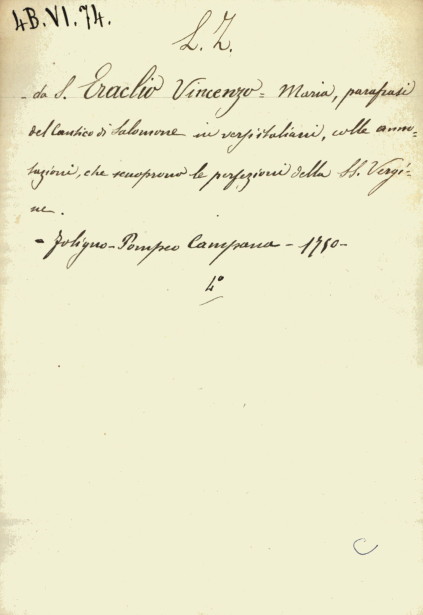 4B.VI.74.
L.Z.
- da S. Eraclio Vincenzo = Maria, parafrasi
del Cantico di Salomone in versi italiani, colle anno-
tazioni, che scuoprono le perfezioni della SS. Vergi-
ne.
- Foligno - Pompeo Campana - 1750 -
4°
C